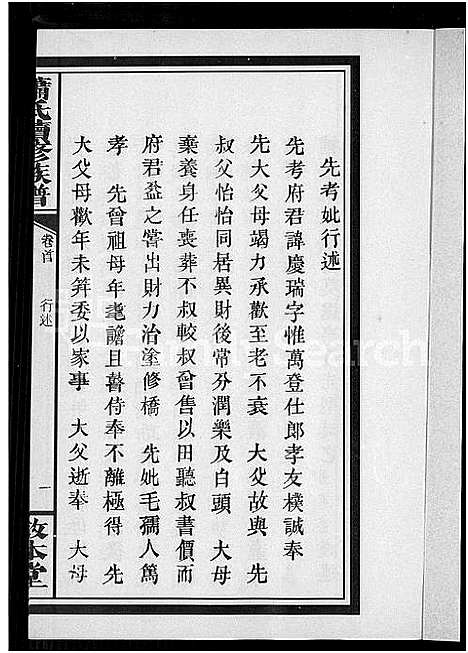 先考妣行述
先考府君諱慶瑞字惟萬登仕郎孝友樸誠奉
先大父母竭力承歡至老不衰　大父故與　先
叔父怡怡同居異財後常分潤樂及白頭　大母
棄養身任喪葬不叔較叔曾售以田聽叔書價而
府君益之嘗出財力治塗修橋　先妣毛孺人篤
孝　先曾祖母年耄譫且瞽侍奉不離極得　先
大父母歡年未筭委以家事　大父逝奉　大母
蕭氏續修族譜
卷首
行述
一
敦本堂
Search